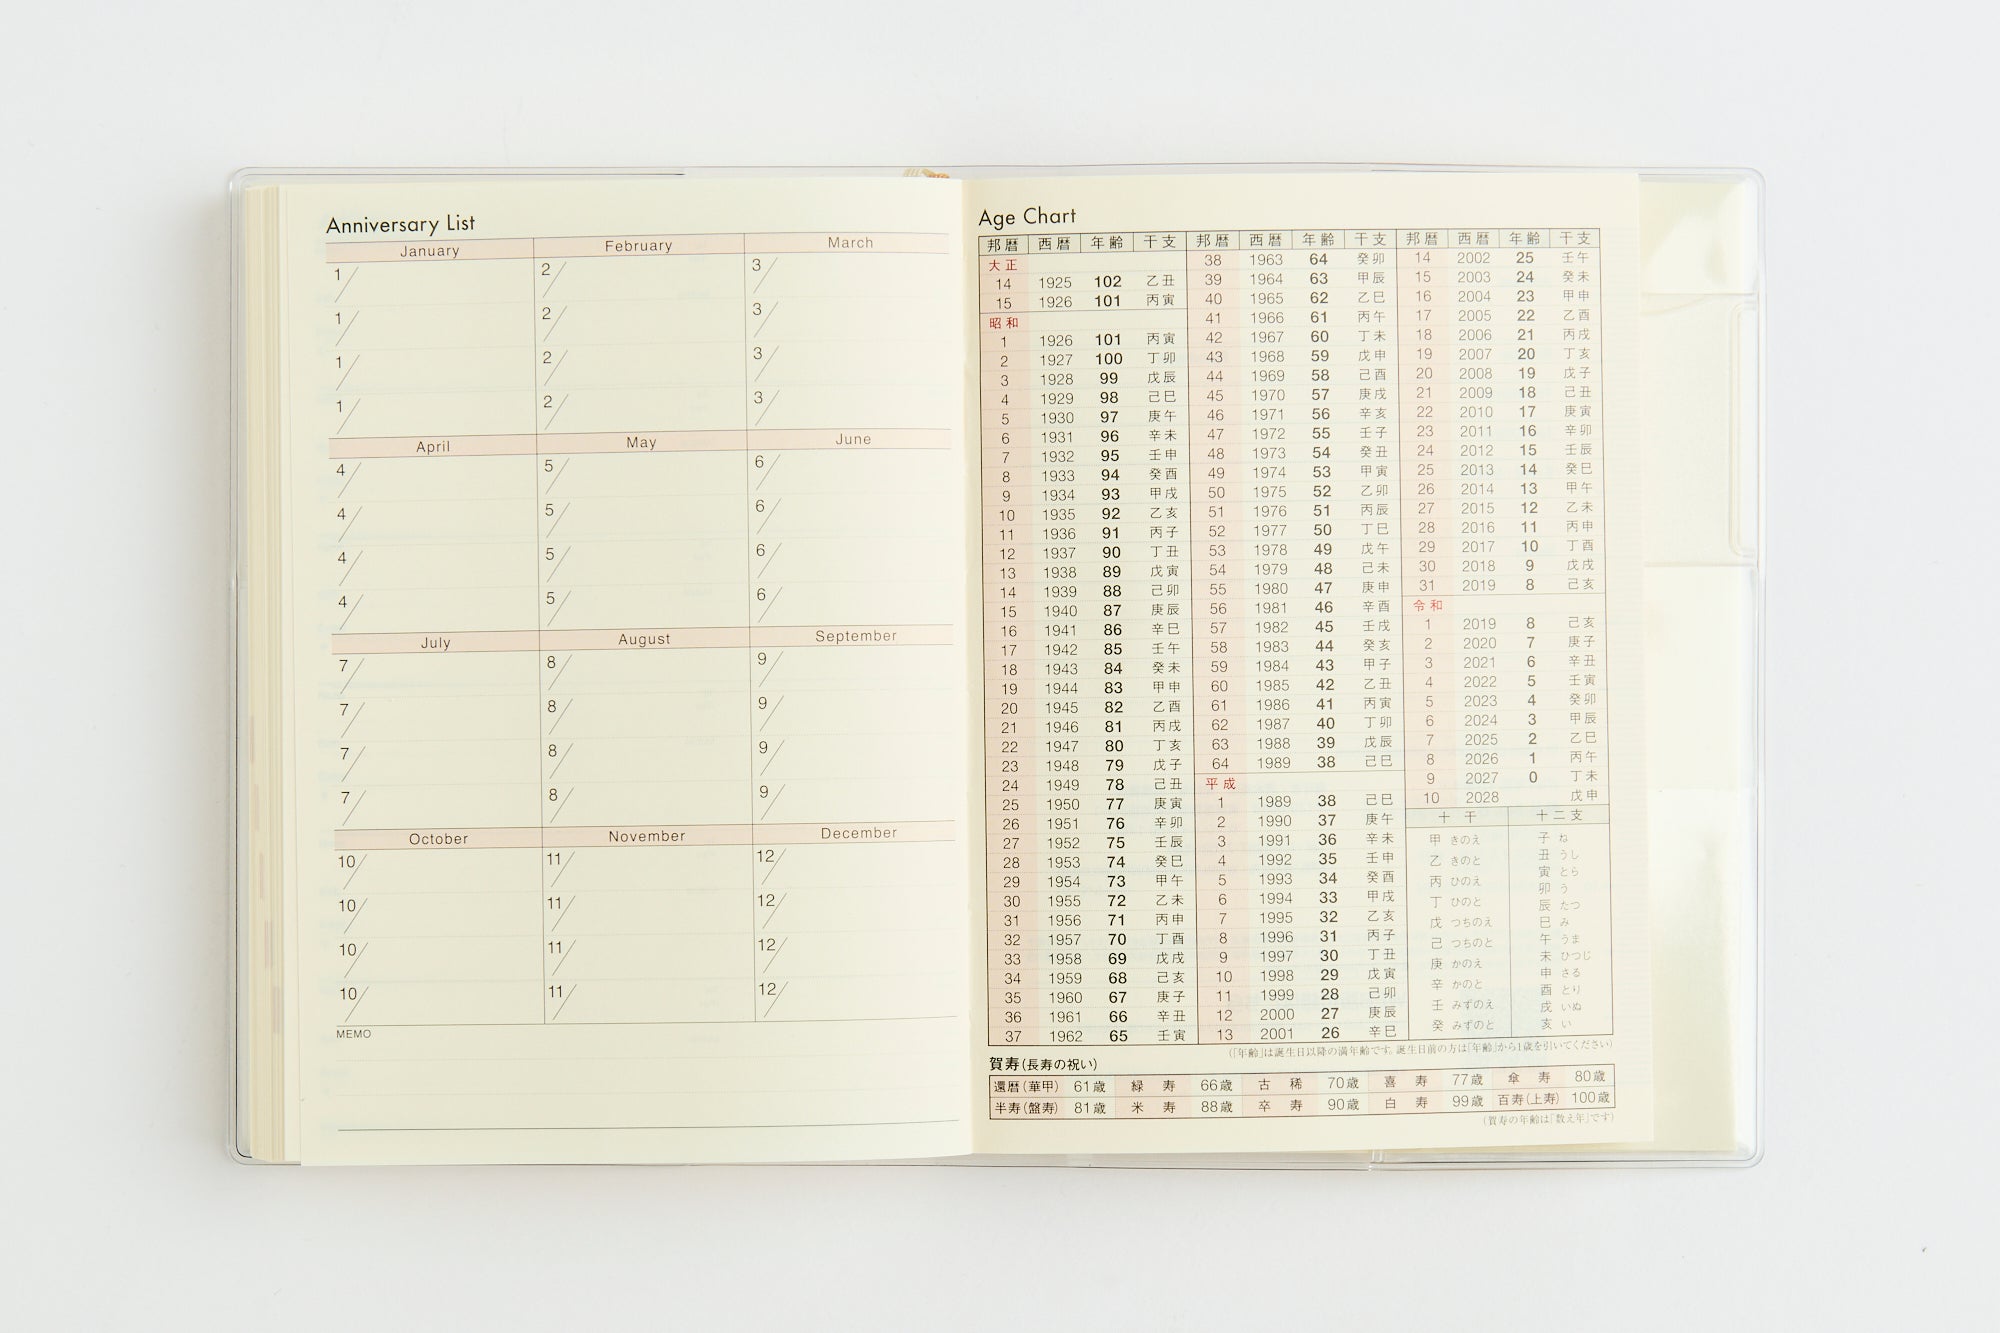 Anniversary List
January February March
1/ 2/ 3/
1/ 2/ 3/
1/ 2/ 3/
1/ 2/ 3/
April May June
4/ 5/ 6/
4/ 5/ 6/
4/ 5/ 6/
4/ 5/ 6/
July August September
7/ 8/ 9/
7/ 8/ 9/
7/ 8/ 9/
7/ 8/ 9/
October November December
10/ 11/ 12/
10/ 11/ 12/
10/ 11/ 12/
10/ 11/ 12/
MEMO
Age Chart
邦暦 西暦 年齢 干支
大正
14 1925 102 乙丑
15 1926 101 丙寅
昭和
1 1926 101 丙寅
2 1927 100 丁卯
3 1928 99 戊辰
4 1929 98 己巳
5 1930 97 庚午
6 1931 96 辛未
7 1932 95 壬申
8 1933 94 癸酉
9 1934 93 甲戌
10 1935 92 乙亥
11 1936 91 丙子
12 1937 90 丁丑
13 1938 89 戊寅
14 1939 88 己卯
15 1940 87 庚辰
16 1941 86 辛巳
17 1942 85 壬午
18 1943 84 癸未
19 1944 83 甲申
20 1945 82 乙酉
21 1946 81 丙戌
22 1947 80 丁亥
23 1948 79 戊子
24 1949 78 己丑
25 1950 77 庚寅
26 1951 76 辛卯
27 1952 75 壬辰
28 1953 74 癸巳
29 1954 73 甲午
30 1955 72 乙未
31 1956 71 丙申
32 1957 70 丁酉
33 1958 69 戊戌
34 1959 68 己亥
35 1960 67 庚子
36 1961 66 辛丑
37 1962 65 壬寅
邦暦 西暦 年齢 干支
38 1963 64 癸卯
39 1964 63 甲辰
40 1965 62 乙巳
41 1966 61 丙午
42 1967 60 丁未
43 1968 59 戊申
44 1969 58 己酉
45 1970 57 庚戌
46 1971 56 辛亥
47 1972 55 壬子
48 1973 54 癸丑
49 1974 53 甲寅
50 1975 52 乙卯
51 1976 51 丙辰
52 1977 50 丁巳
53 1978 49 戊午
54 1979 48 己未
55 1980 47 庚申
56 1981 46 辛酉
57 1982 45 壬戌
58 1983 44 癸亥
59 1984 43 甲子
60 1985 42 乙丑
61 1986 41 丙寅
62 1987 40 丁卯
63 1988 39 戊辰
64 1989 38 己巳
平成
1 1989 38 己巳
2 1990 37 庚午
3 1991 36 辛未
4 1992 35 壬申
5 1993 34 癸酉
6 1994 33 甲戌
7 1995 32 乙亥
8 1996 31 丙子
9 1997 30 丁丑
10 1998 29 戊寅
11 1999 28 己卯
12 2000 27 庚辰
13 2001 26 辛巳
邦暦 西暦 年齢 干支
14 2002 25 壬午
15 2003 24 癸未
16 2004 23 甲申
17 2005 22 乙酉
18 2006 21 丙戌
19 2007 20 丁亥
20 2008 19 戊子
21 2009 18 己丑
22 2010 17 庚寅
23 2011 16 辛卯
24 2012 15 壬辰
25 2013 14 癸巳
26 2014 13 甲午
27 2015 12 乙未
28 2016 11 丙申
29 2017 10 丁酉
30 2018 9 戊戌
31 2019 8 己亥
令和
1 2019 8 己亥
2 2020 7 庚子
3 2021 6 辛丑
4 2022 5 壬寅
5 2023 4 癸卯
6 2024 3 甲辰
7 2025 2 乙巳
8 2026 1 丙午
9 2027 0 丁未
10 2028 戊申
十干
甲 きのえ
乙 きのと
丙 ひのえ
丁 ひのと
戊 つちのえ
己 つちのと
庚 かのえ
辛 かのと
壬 みずのえ
癸 みずのと
十二支
子 ね
丑 うし
寅 とら
卯 う
辰 たつ
巳 み
午 うま
未 ひつじ
申 さる
酉 とり
戌 いぬ
亥 い
(「年齢」は誕生日以降の満年齢です。誕生日前の方は「年齢」から1歳を引いてください)
賀寿(長寿の祝い)
還暦(華甲) 61歳 緑寿 66歳 古稀 70歳 喜寿 77歳 傘寿 80歳
半寿(盤寿) 81歳 米寿 88歳 卒寿 90歳 白寿 99歳 百寿(上寿) 100歳
(賀寿の年齢は「数え年」です)